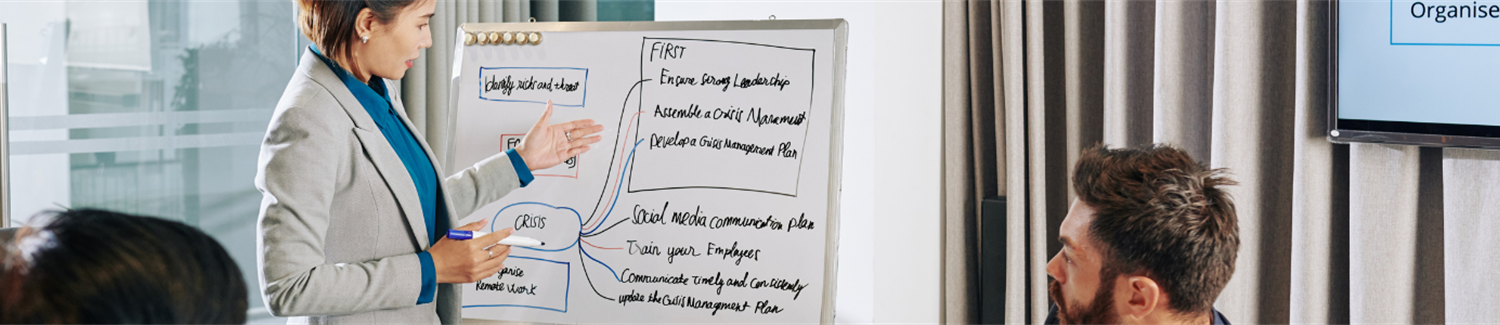 Organise
FIRST
Identify risks and threat
Ensure strong Leadership
Assemble a Crisis Manament
Develop a Crisis Management Plan
CRISIS
Social media communication plan
Train your Employees
Communicate Timely and Consistenly
update the Crisis Management Plan
Remote work